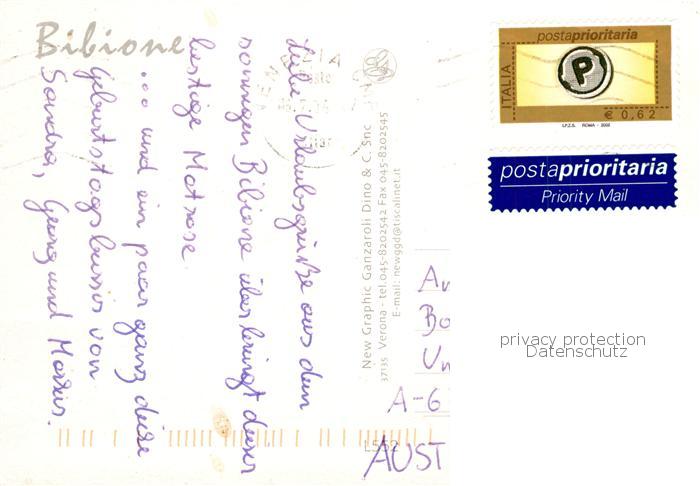 Bibione
Liebe Urlaubsgrüße aus dem
sonnigen Bibione überbringt dieser
lustige Matrose.
... und ein paar ganz dicke
Geburtstagsbussis von
Sandra, Georg und Markus.
New Graphic Ganzaroli Dino & C. Snc
37135 Verona - tel.045-8202542 Fax 045-8202545
E-mail: newggd@tiscalinet.it
L552
ITALIA
postaprioritaria
P
€ 0,62
I.P.Z.S. ROMA - 2002
postaprioritaria
Priority Mail
privacy protection
Datenschutz
A-6
AUST